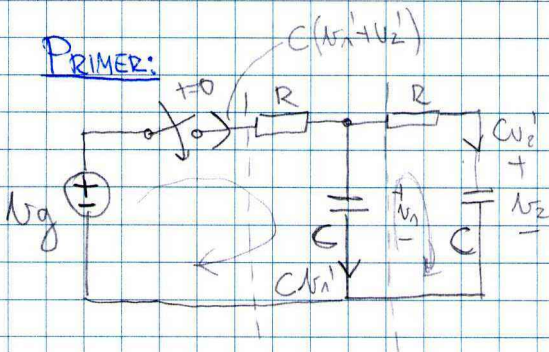 PRIMER:
C(v₁'+v₂')
t=0
R
R
Cv₂'
+
v₂
−
+
v₁
−
C
C
Cv₁'
+
−
vg